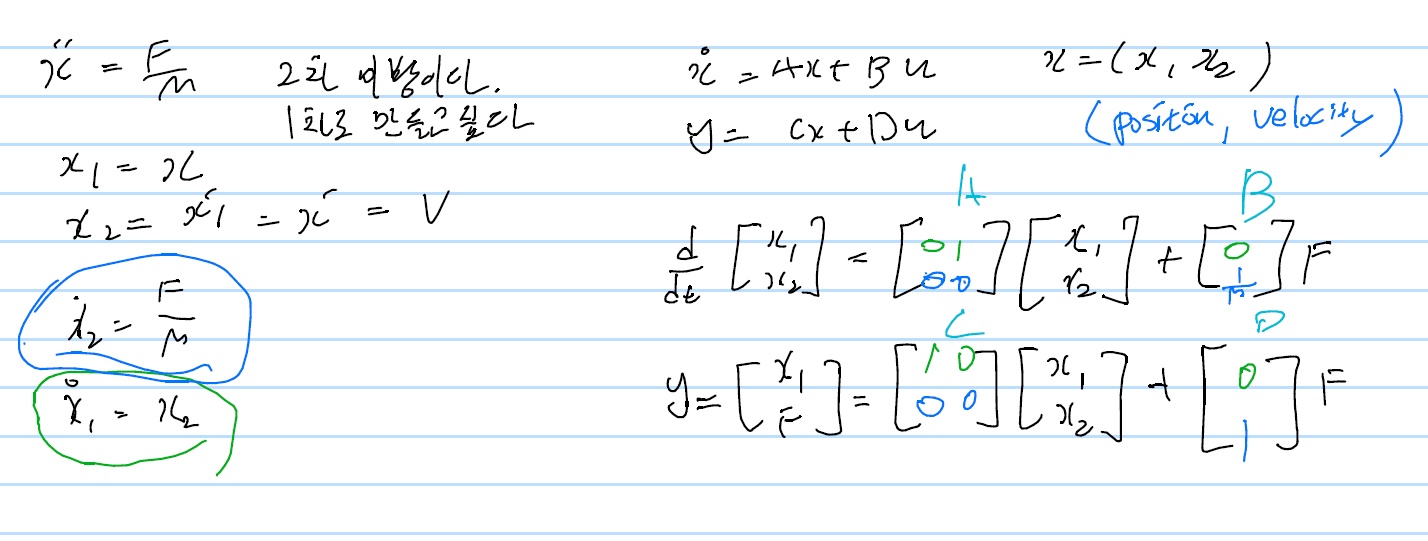 ẍ = F/M 2차 미방이다.
1차로 만들고 싶다
x₁ = x
x₂ = ẋ₁ = ẋ = V
ẋ₂ = F/M
ẋ₁ = x₂
ẋ = Ax + Bu x = (x₁, x₂)
y = Cx + Du (position, velocity)
A B
d/dt [x₁; x₂] = [0 1; 0 0] [x₁; x₂] + [0; 1/m] F
C D
y = [x₁; F] = [1 0; 0 0] [x₁; x₂] + [0; 1] F